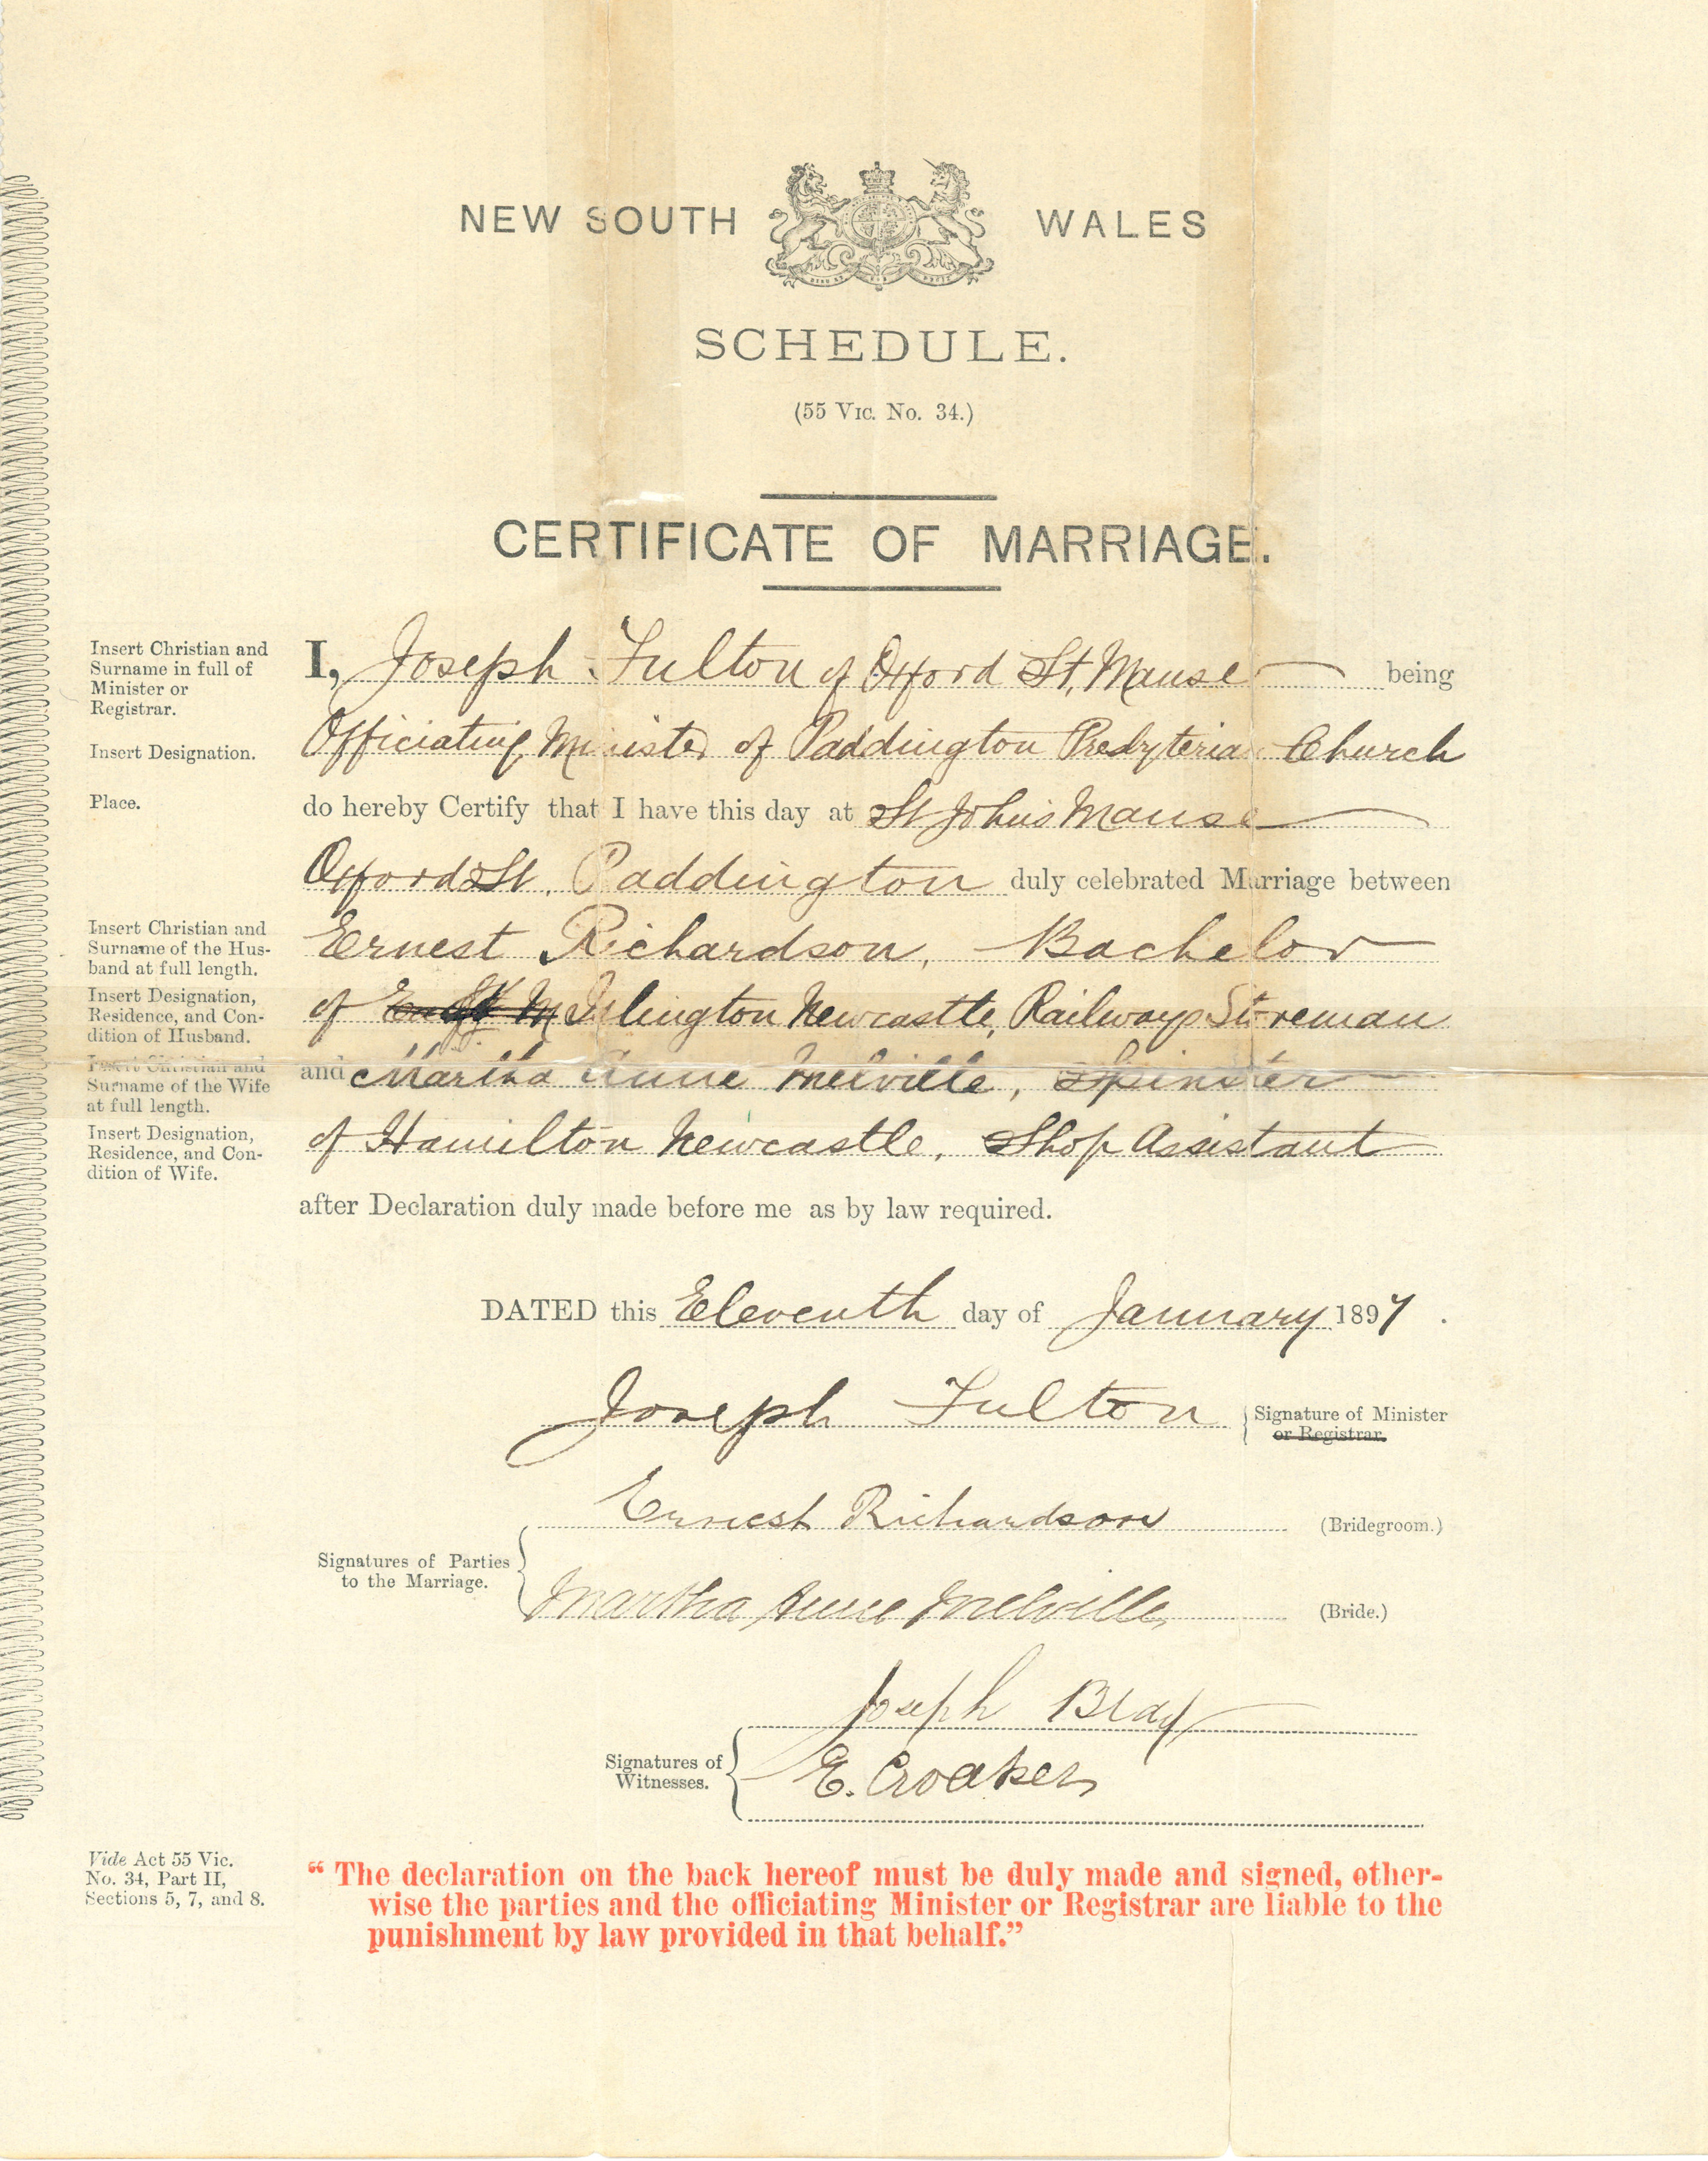 NEW SOUTH WALES
SCHEDULE.
(55 VIC. No. 34.)
CERTIFICATE OF MARRIAGE.
Insert Christian and
Surname in full of
Minister or
Registrar.
I, Joseph Fulton of Oxford St, Manse being
Insert Designation.
Officiating Minister of Paddington Presbyterian Church
Place.
do hereby Certify that I have this day at St John's Manse
Oxford St, Paddington duly celebrated Marriage between
Insert Christian and
Surname of the Hus-
band at full length.
Ernest Richardson, Bachelor
Insert Designation,
Residence, and Con-
dition of Husband.
of Islington Newcastle, Railways Storeman
Insert Christian and
Surname of the Wife
at full length.
and Martha Anne Melville, Spinster
Insert Designation,
Residence, and Con-
dition of Wife.
of Hamilton Newcastle, Shop Assistant
after Declaration duly made before me as by law required.
DATED this Eleventh day of January 1897.
Joseph Fulton
Signature of Minister
or Registrar.
Ernest Richardson (Bridegroom.)
Signatures of Parties
to the Marriage.
Martha Anne Melville (Bride.)
Joseph Bray
Signatures of
Witnesses.
E. Croaker
Vide Act 55 Vic.
No. 34, Part II,
Sections 5, 7, and 8.
"The declaration on the back hereof must be duly made and signed, other-
wise the parties and the officiating Minister or Registrar are liable to the
punishment by law provided in that behalf."